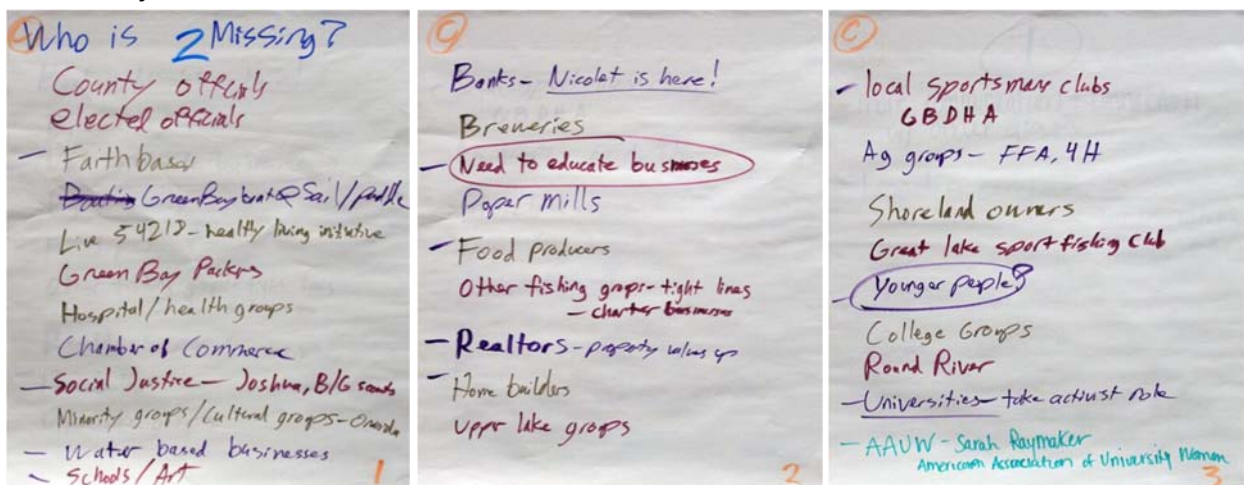 C
Who is 2 Missing?
County officials
elected officials
- Faith based
Green Bay boat & Sail/paddle
Live 54218 - healthy living initiative
Green Bay Packers
Hospital/health groups
Chamber of Commerce
- Social Justice - Joshua, B/G scouts
Minority groups/Cultural groups - Oneida
- Water based businesses
- Schools/Art
1
C
Banks - Nicolet is here!
Breweries
- Need to educate businesses
Paper mills
- Food producers
Other fishing groups - tight lines
- charter businesses
- Realtors - property values up
- Home builders
Uppr lake groups
2
C
- local sportsmans clubs
GBDHA
Ag groups - FFA, 4H
Shoreland owners
Great lake sport fishing club
- Younger people?
College Groups
Round River
- Universities - take activist role
- AAUW - Sarah Raymaker
American Association of University Women
3